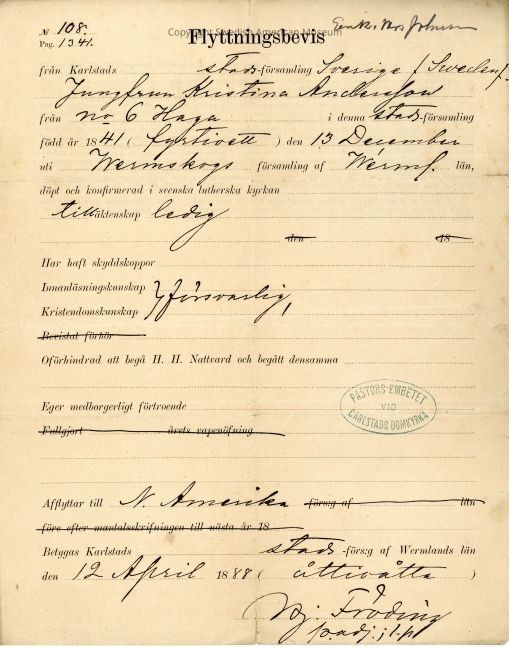 Copyright Swedish American Museum
№ 108.
Pag. 1341.
Flyttningsbevis
från Karlstads stads-församling Sverige (Sweden).
Jungfrun Kristina Andersson
från No 6 Haga i denna stads-församling
född år 1841 (fyrtioett) den 13 December
uti Wermskogs församling af Werml. län,
döpt och konfirmerad i svenska lutherska kyrkan
till äktenskap ledig
den 18
Har haft skyddskoppor
Innanläsningskunskap
Kristendomskunskap } försvarlig,
Bevistat förhör
Oförhindrad att begå H. H. Nattvard och begått densamma
Eger medborgerligt förtroende
Fullgjort årets vapenöfning
PASTORS-EMBETET
VID
CARLSTADS DOMKYRKA
Afflyttar till N. Amerika förs:g af län
före efter mantalsskrifningen till nästa år 18
Betygas Karlstads stads-förs:g af Wermlands län
den 12 April 1888 (åttioåtta)
Fröding